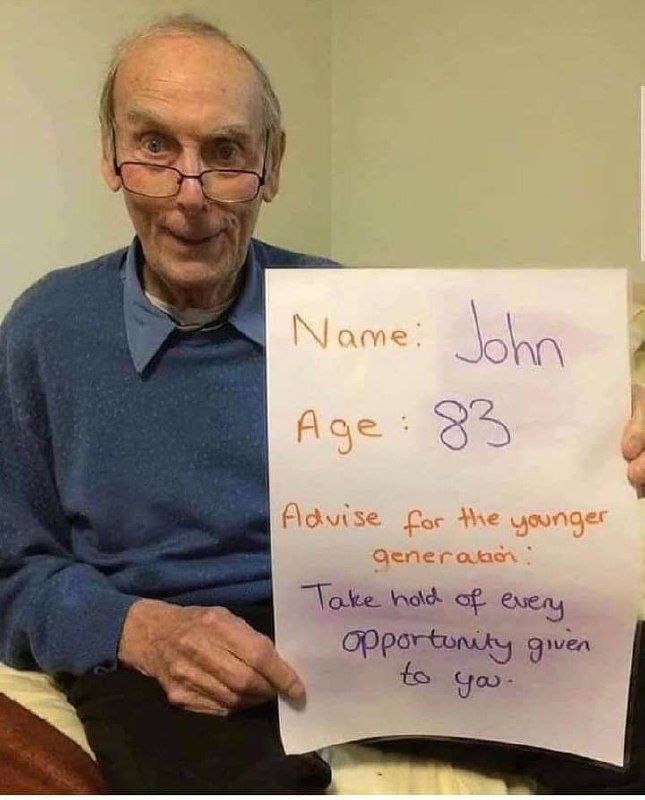 Name: John
Age: 83
Advise for the younger
generation:
Take hold of every
opportunity given
to you.